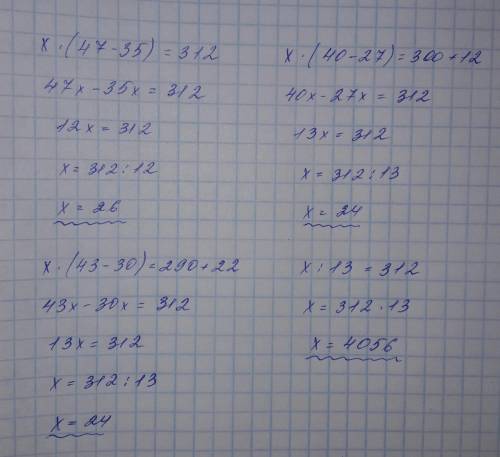 x · (47-35) = 312
47x - 35x = 312
12x = 312
x = 312 : 12
x = 26
x · (40-27) = 300+12
40x - 27x = 312
13x = 312
x = 312 : 13
x = 24
x · (43-30) = 290+22
43x - 30x = 312
13x = 312
x = 312 : 13
x = 24
x : 13 = 312
x = 312 · 13
x = 4056